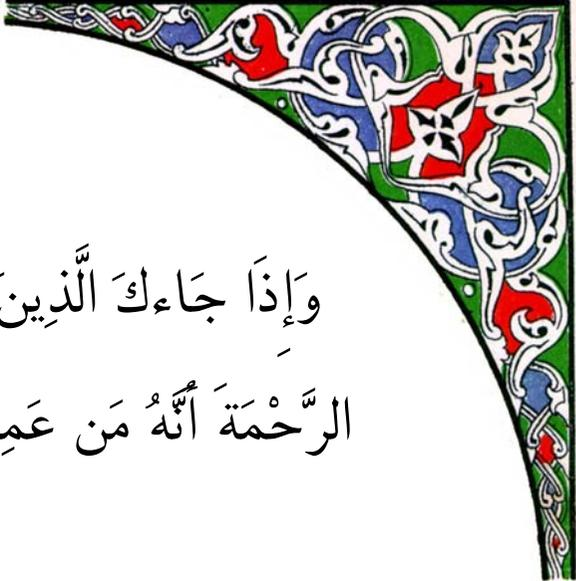 وَإِذَا جَاءكَ الَّذِينَ
الرَّحْمَةَ أَنَّهُ مَن